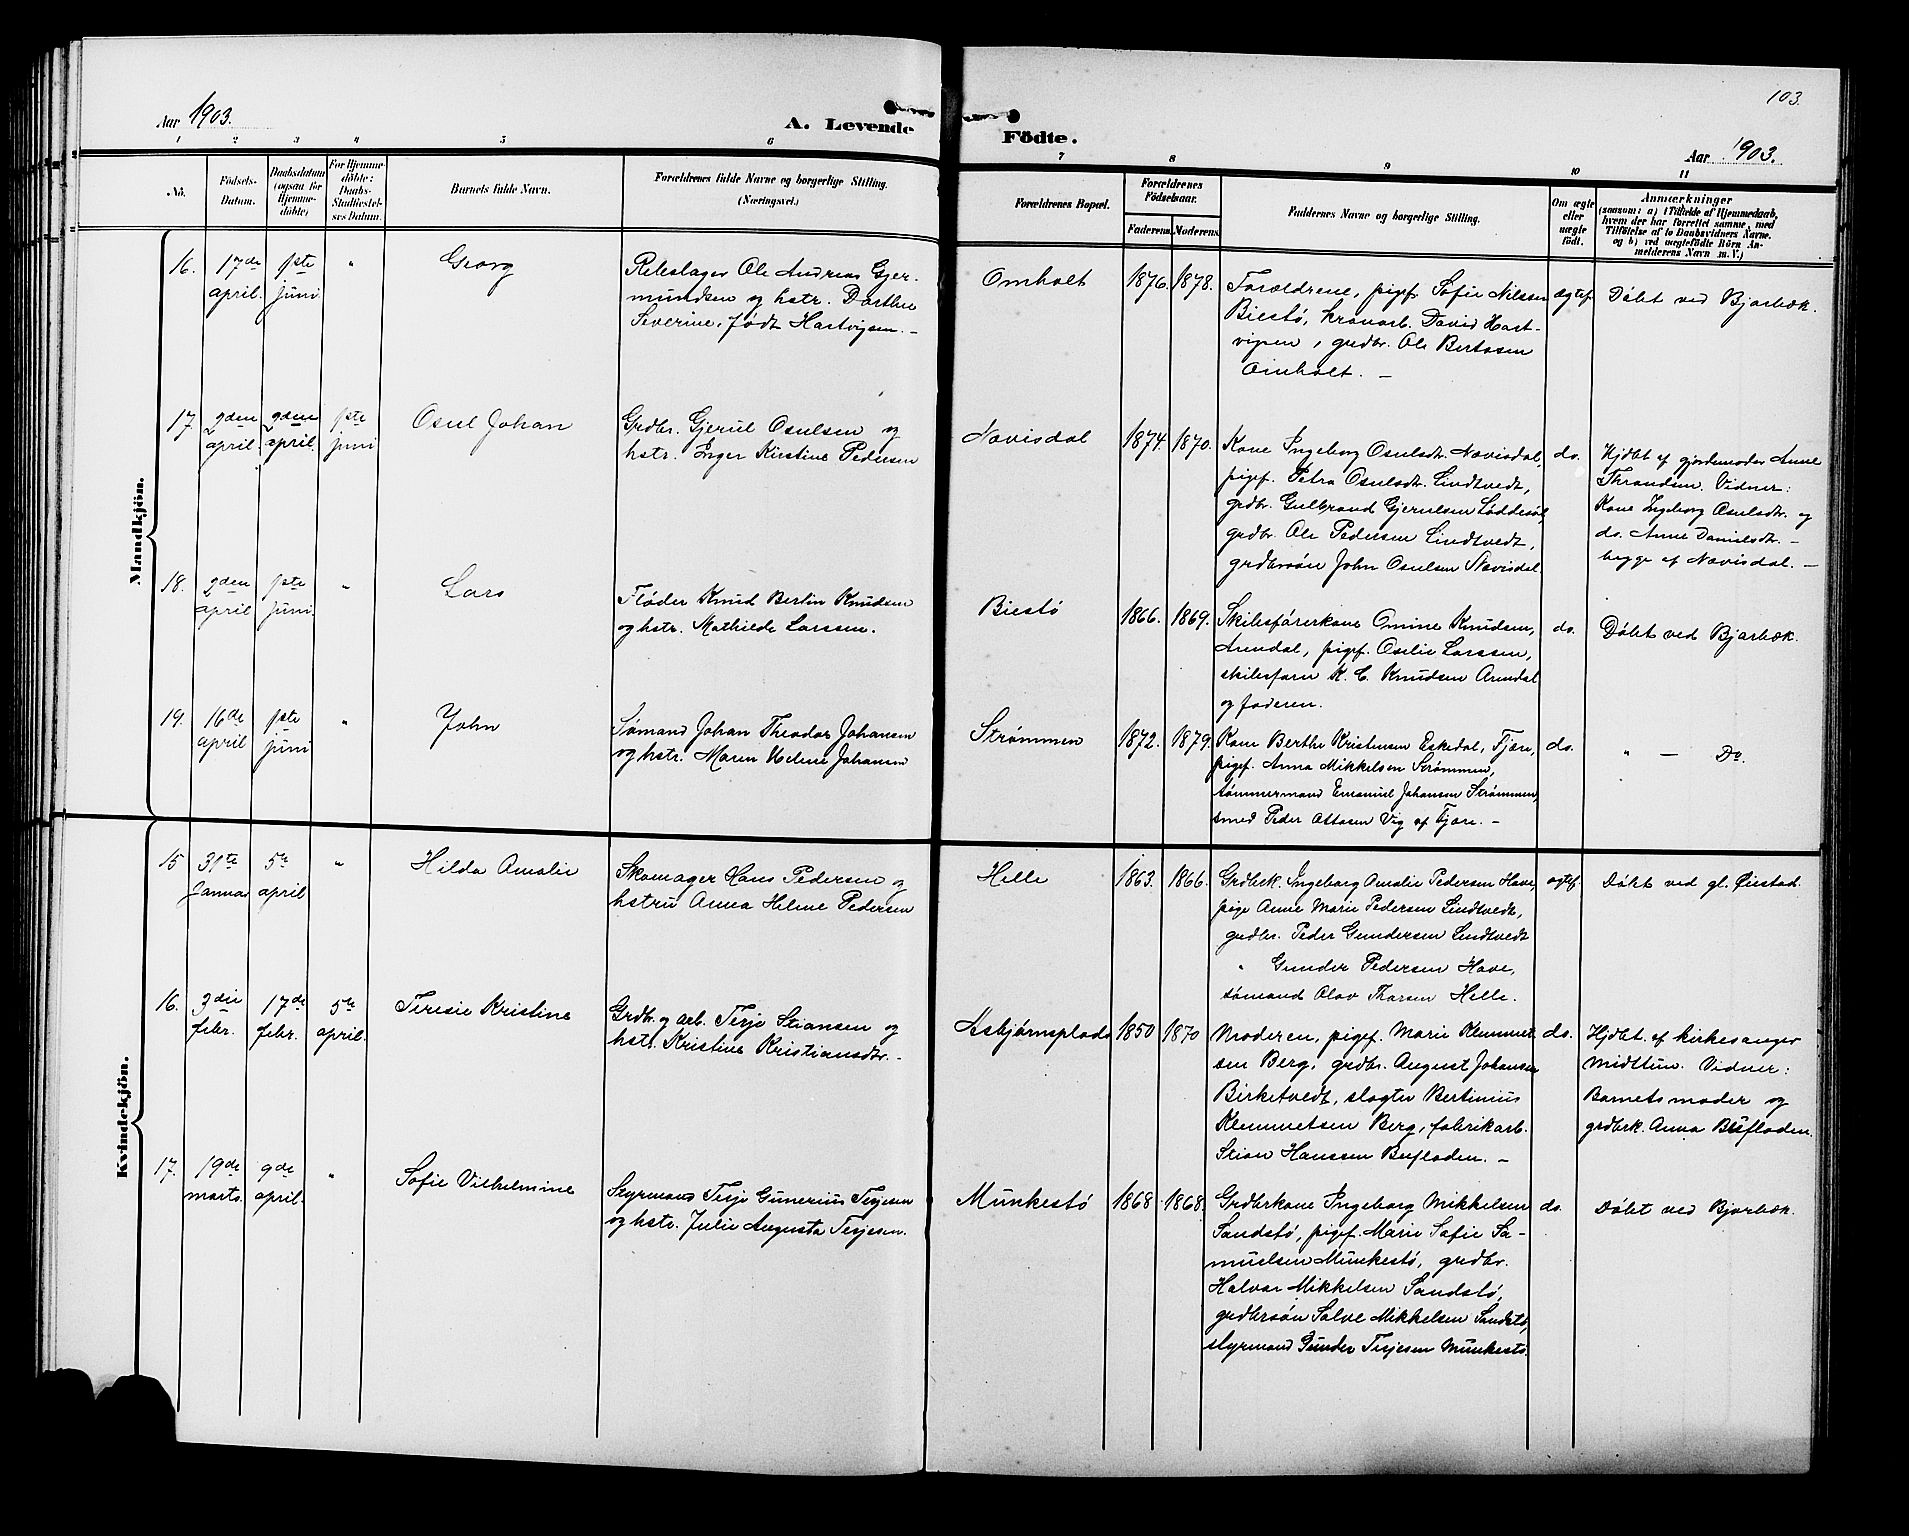 103.
Aar 1903.
A. Levende
Födte.
Aar 1903.
1 2 3 4 5 6 7 8 9 10 11
No.
Födsels-
Datum.
Daabsdatum
(ogsaa for
Hjemme-
döbte)
For Hjemme-
döbte:
Daabs-
Stadfæstel-
ses Datum.
Barnets fulde Navn.
Forældrenes fulde Navne og borgerlige Stilling.
(Næringsvei.)
Forældrenes Bopæl.
Forældrenes
Födselsaar.
Faderens. Moderens.
Faddernes Navne og borgerlige Stilling.
Om ægte
eller
uægte
födt.
Anmærkninger
(saasom: a) i Tilfælde af Hjemmedaab,
hvem der har forrettet samme, med
Tilföielse af to Daabsvidners Navne.
og b) ved uægtefödte Börn An-
melderens Navn m. V.)
Mandkjön.
16.
17de
april.
1ste
juni.
"
Georg
Rebslager Ole Andreas Gjer-
mundsen og hstr. Dorthe
Severine, født Hartvigsen. -
Omholt
1876. 1878.
Forældrene, pigef. Sofie Nilssen
Biestø, kranarb. David Hart-
vigsen, grdbr. Ole Bertosen
Omholt. -
ægtef
Døbt ved Bjorbæk.
17.
2den
april.
2den
april.
1ste
juni
Osul Johan
Grdbr. Gjerul Osulsen og
hstr. Inger Kirstine Pedersen
Nævisdal
1874. 1870.
Kone Ingeborg Osulsdtr. Nævisdal,
pigef. Petra Osulsdtr. Lindtvedt,
grdbr. Gulbrand Gjerulsen Løddesøl,
grdbr. Ole Pedersen Lindtvedt,
grdbrsøn John Osulsen Nævisdal.
do.
Hjdbt af gjordemoder Anne
Thrandsen. Vidner:
Kone Ingeborg Osulsdtr. og
do. Anne Danielsdtr. -
begge af Nævisdal. -
18.
2den
april
1ste
juni.
"
Lars
Fløder Knud Bertin Knudsen
og hstr. Mathilde Larssen.
Biestø
1866. 1869.
Skibsførerkone Omine Knudsen,
Arendal, pigef. Oselie Larssen,
skibsfører K. C. Knudsen Arendal
og faderen.
do.
Døbt ved Bjorbæk.
19.
16de
april
1ste
juni
"
John
Sømand Johan Theodor Johansen
og hstr. Maren Helene Johansen
Strømmen
1872. 1879.
Kone Berthe Kristensen Eskedal, Fjære,
pigef. Anna Mikkelsen Strømmen,
tømmermand Emanuel Johansen Strømmen,
smed Peder Ottosen Vig af Fjære. -
do.
" - Do.
Kvindekjön.
15
31te
Januar
5te
april
"
Hilda Amalie
Skomager Hans Pedersen og
hstru Anna Helene Pedersen
Helle
1863. 1866.
Grdbrk. Ingeborg Amalie Pedersen Have,
pige Anne Marie Pedersen Lindtvedt,
grdbr. Peder Gundersen Lindtvedt
" Gunder Pedersen Have,
sømand Olav Thorsen Helle.
ægtef.
Døbt ved gl. Øiestad.
16.
3die
febr.
17de
febr.
5te
april.
Teresie Kristine
Grdbr. og arb. Terje Stiansen og
hstr. Kristine Kristiansdtr. -
Asbjørnsplads
1850 1870
Moderen, pigef. Marie Klemmet-
sen Berg, grdbr. August Johansen
Birketvedt, slagter Bertinius
Klemmetsen Berg, fabrikarb.
Stian Hanssen Bufladen. -
do.
Hjdbt. af kirkesanger
Midttun. Vidner:
Barnets moder og
grdbrk. Anna Bufladen.
17.
19de
marts.
9de
april.
"
Sofie Vilhelmine
Styrmand Terje Gunerius Terjesen
og hstr. Julie Augusta Terjesen.
Munkestø
1868 1868.
Grdbrkone Ingeborg Mikkelsen
Sandstø, pigef. Marie Sofie Sa-
muelsen Munkestø, grdbr.
Halvor Mikkelsen Sandstø,
grdbrsøn Salve Mikkelsen Sandstø,
styrmand Gunder Terjesen Munkestø.
do.
Døbt ved Bjorbæk.